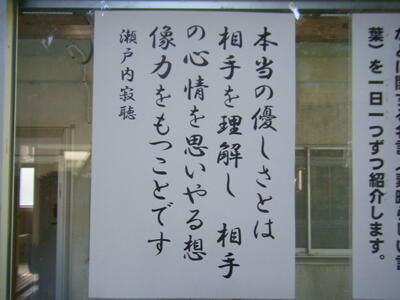 本当の優しさとは
相手を理解し 相手
の心情を思いやる想
像力をもつことです
瀬戸内寂聴
葉）を一日一つずつ紹介します。